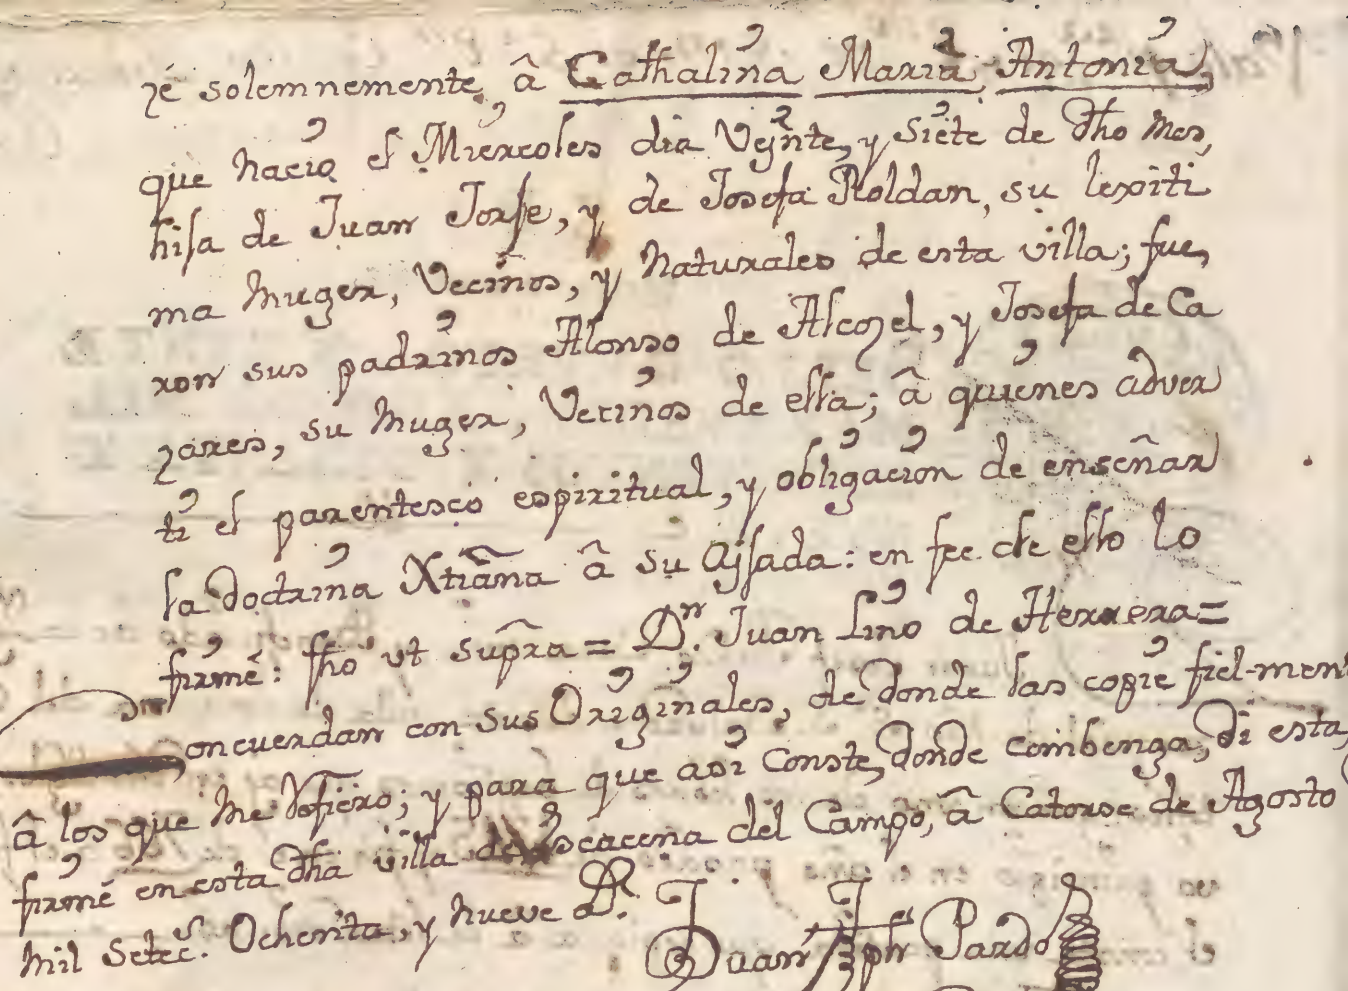 zé solemnemente, â Cathalina Maria Antonia,
que nacio el Miercoles dia Veynte, y siete de dho mes,
hija de Juan Jorje, y de Josefa Roldan, su lexiti
ma muger, Vecinos, y naturales de esta villa; fue,
ron sus padrinos Alonso de Alcozel, y Josefa de Ca
zares, su muger, Vecinos de ella; â quienes adver
ti el parentesco espiritual, y obligacion de enseñar
la doctrina Xtiãna â su Ajjada: en fee de ello lo
firmé: fho ut supra = Dn. Juan Lino de Herrera =
Concuerdan con sus Originales, de donde las copie fiel-ment
â los que me refiero; y para que asi Conste, donde combenga, di esta,
firmé en esta dha villa de Escacena del Campo, â Catorse de Agosto
mil setec. Ochenta, y nueve a.
Juan Jph Pardo